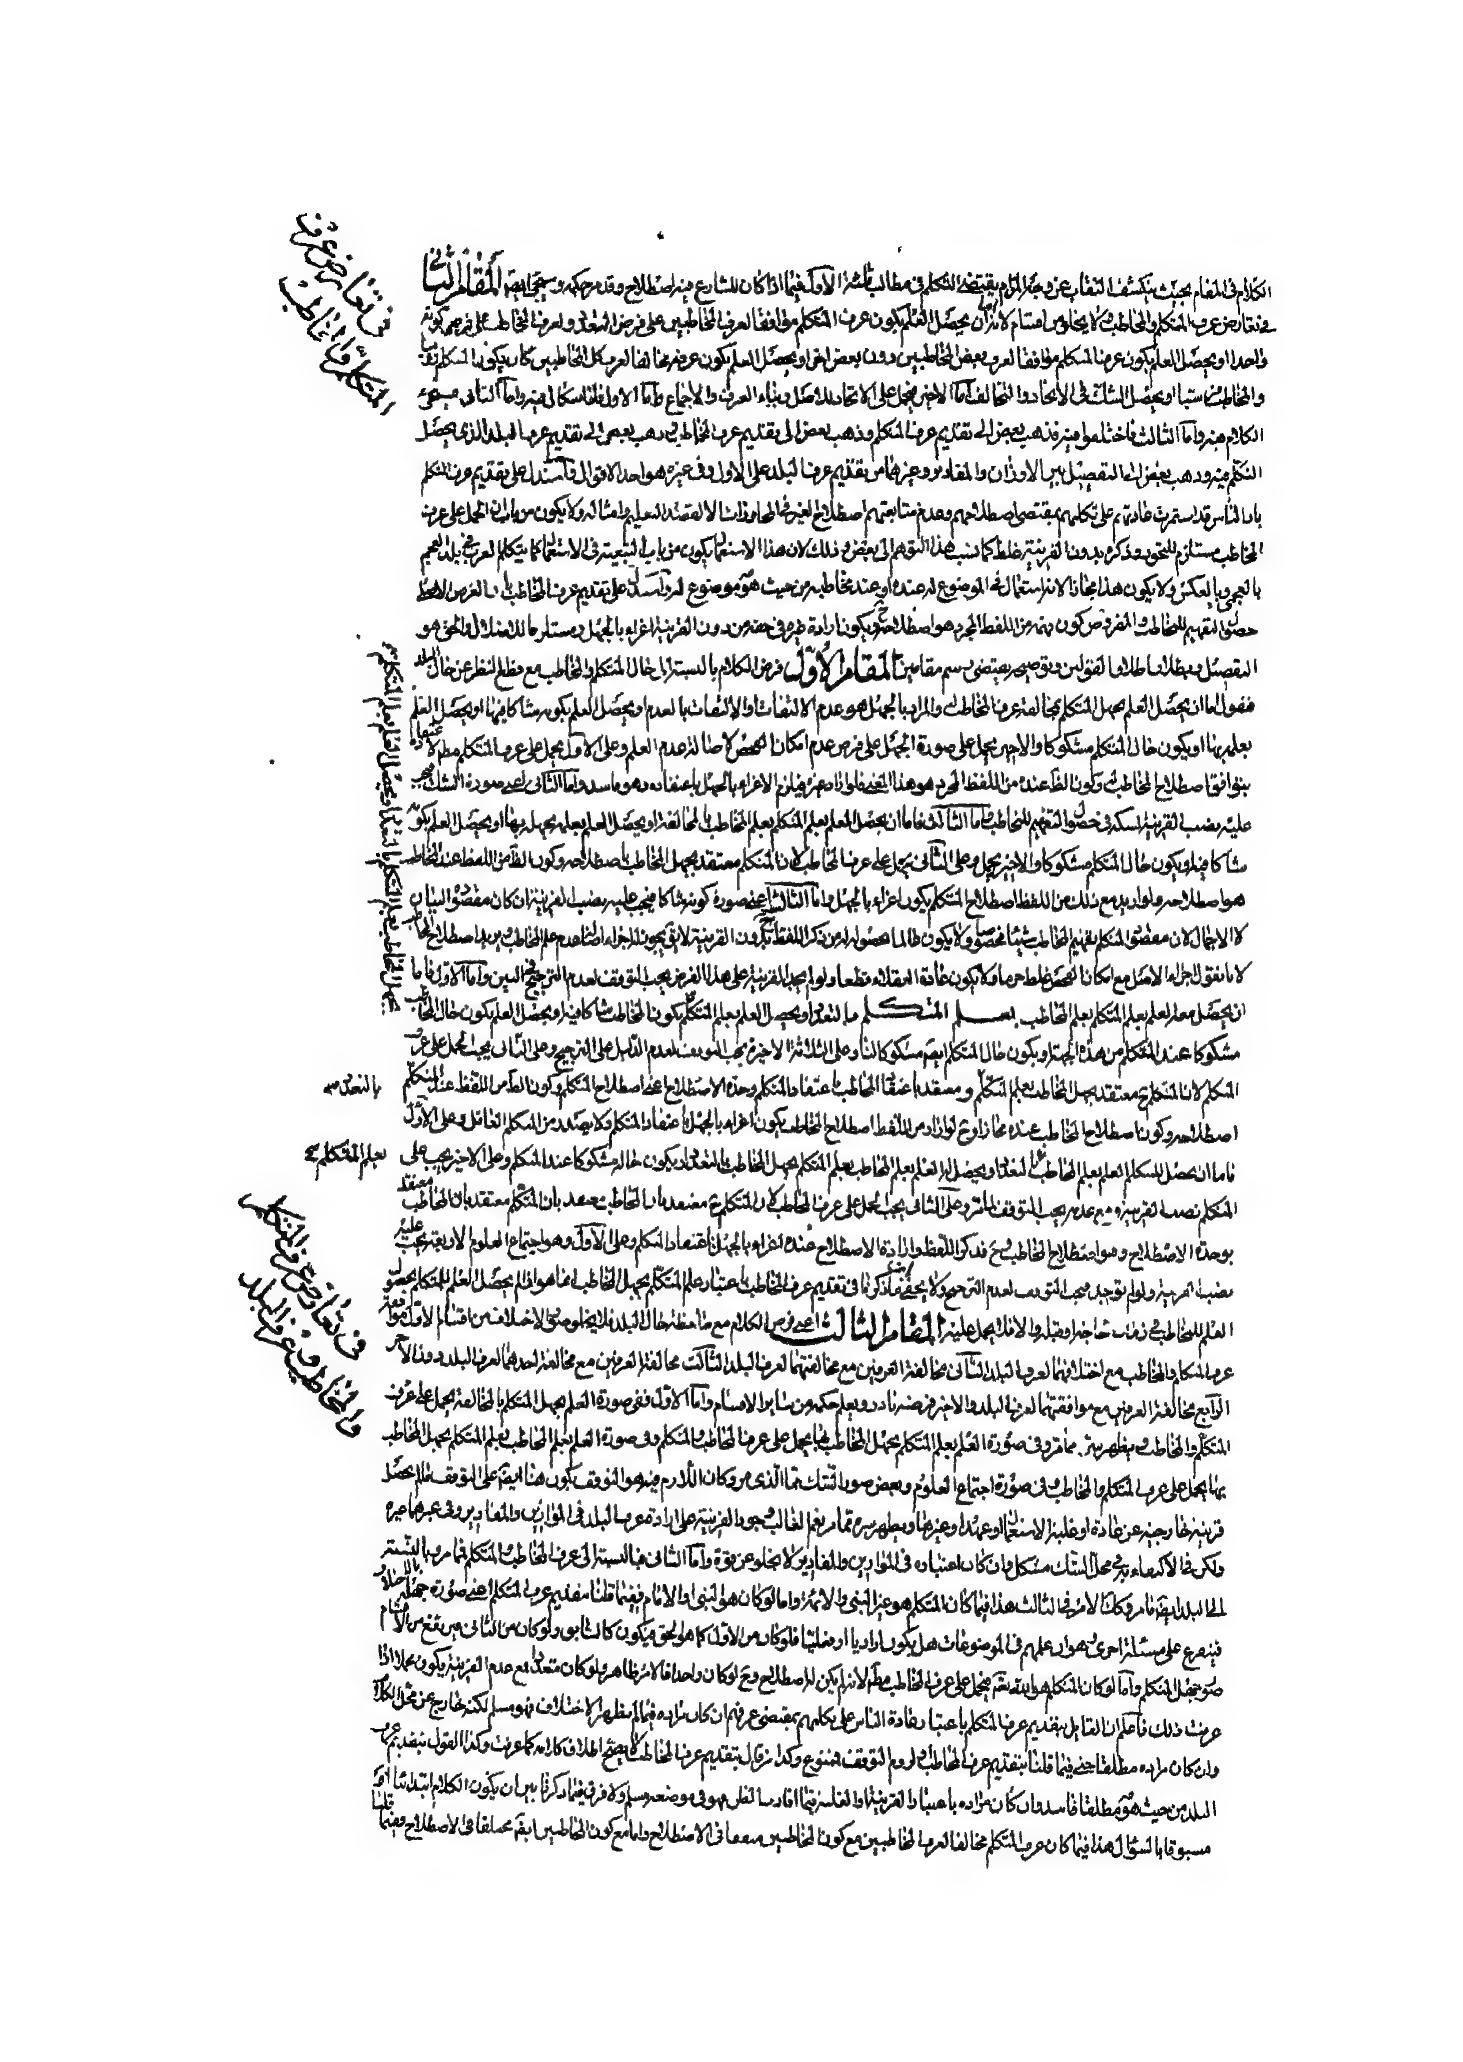 الكلام فى المقام بحيث ينكشف النقاب عن وجه المرام يقتضى التكلم فى مطالب ثلثة الاول فيما اذا كان للشارع فيه اصطلاح وقد مر حكمه وسيجئ ايضا المقام الثانى
فى تعارض عرف المتكلم والمخاطب ولا يخلو من اقسام لانه اما ان يحصل العلم بكون عرف المتكلم موافقا لعرف المخاطبين على فرض التعدد ولعرف المخاطب على فرض كونه
واحدا او يحصل العلم بكون عرف المتكلم موافقا لعرف بعض المخاطبين دون بعض اخر او يحصل العلم بكون عرفه مخالفا لعرف كل المخاطبين كان يكون المتكلم
والمخاطب او يحصل الشك فى الاتحاد والتخالف اما الاخير فيحمل على الاتحاد للاصل وبناء العرف والاجماع واما الاول فلا اشكال فيه واما الثانى فسيجئ
الكلام فيه واما الثالث فاختلفوا فيه فذهب بعض الى تقديم عرف المتكلم وذهب بعض الى تقديم عرف المخاطب وذهب بعض الى تقديم عرف البلد الذى يحصل
التكلم فيه وذهب بعض الى التفصيل بين الاوزان والمقادير وغيرهما من تقديم عرف البلد على الاول وفى غيره هو احد الاقوال واستدل على تقديم عرف المتكلم
بان الناس قد استمرت عادتهم على تكلمهم بمقتضى اصطلاحهم وعدم متابعتهم اصطلاح الغير فى المحاورات الا لقصد التعليم وامثاله ولا يكون من باب ان الحمل على عرف
المخاطب مستلزم للتجوز وذكره بدون القرينة غلط كما نسب هذا التوهم الى بعض وذلك لان هذا الاستعمال يكون من باب التبعية فى الاستعمال كما يتكلم العرب فى بلد العجم
بالعجمى وبالعكس ولا يكون هذا مجازا لانه استعمال فى الموضوع له عنده او عند مخاطبه من حيث هو موضوع له واستدل على تقديم عرف المخاطب بان الغرض الاصلى
حصول التفهيم للمخاطب والمفروض كون فهمه من اللفظ المجرد هو اصطلاحه فيكون ارادة غيره فى حقه من دون القرينة اغراء بالجهل ومستلزما للاضلال والحق هو
التفصيل وبطلان اطلاق القولين وتوضيحه يقتضى رسم مقامين المقام الاول فرض الكلام بالنسبة الى حال المتكلم والمخاطب مع قطع النظر عن حال البلد
فنقول اما ان يحصل العلم بجهل المتكلم بمخالفة عرف المخاطب والمراد بالجهل هو عدم الالتفات والالتفات بالعدم او يحصل العلم بكونه شاكا فيها او يحصل العلم
بعلمه بها او يكون حال المتكلم مشكوكا والاخير يحمل على صورة الجهل على فرض عدم امكان الفحص لاصالة عدم العلم وعلى الاول يحمل على عرف المتكلم مطلقا لاعتقاده
بتوافق اصطلاح المخاطب وكون الظ عنده من اللفظ المجرد هو هذا المعنى فلو اراد غيره فيلزم الاغراء بالجهل باعتقاده وهو فاسد واما الثانى اعنى صورة الشك فيجب
عليه نصب القرينة حصول التفهيم للمخاطب واما الثالث فاما ان يحصل العلم بعلم المتكلم بعلم المخاطب بالمخالفة او يحصل العلم بعلمه بجهله بها او يحصل العلم بكونه
شاكا فيه او يكون حال المتكلم مشكوكا والاخير يحمل وعلى الثانى يحمل على عرف المخاطب لان المتكلم معتقد بجهل المخاطب باصطلاحه وكون الظ من اللفظ عند المخاطب
هو اصطلاحه فلو اريد مع ذلك من اللفظ اصطلاح المتكلم يكون اغراء بالجهل واما الثالث اعنى صورة كونه شاكا فيجب عليه نصب القرينة ان كان مقصوده البيان
لا الاجمال لان مقصود المتكلم تفهيم المخاطب شيئا مخصوصا ولا يكون طالما حصوله له من ذكر اللفظ بدون القرينة لا يق يجوز له اجراء اصالة عدم علم المخاطب ويريد اصطلاح المخاطب
لانا نقول اجراء الاصل مع امكان الفحص غلط جزما ولا يكون عادة العقلاء قطعا ولو لم يجد القرينة على هذا الفرض يجب التوقف لعدم الترجيح فى البين واما الاول فاما
ان يحصل معه العلم بعلم المتكلم بعلم المخاطب بعلم المتكلم بالتعدد او يحصل العلم بعلم المتكلم بكون المخاطب شاكا فيه او يحصل العلم بكون حال المخاطب
مشكوكا عند المتكلم من هذه الجهة او يكون حال المتكلم ايضا مشكوكا لنا وعلى الثلثة الاخيرة يجب التوقف لعدم الدليل على الترجيح وعلى الثانى يجب الحمل على عرف
المتكلم لان المتكلم ح معتقد بجهل المخاطب بعلم المتكلم ومعتقد باعتقاد المخاطب باعتقاد المتكلم وحدة الاصطلاح اعنى اصطلاح المتكلم وكون الظ من اللفظ عند المتكلم
اصطلاحه وكون اصطلاح المخاطب عنده مجازا وح لو اراد من اللفظ اصطلاح المخاطب يكون اغراء بالجهل باعتقاد المتكلم ولا يصدر من المتكلم العاقل وعلى الاول
فاما ان يحصل للمتكلم العلم بعلم المخاطب او يحصل له العلم بعلم المخاطب بعلم المتكلم بجهل المخاطب بالتعدد او يكون حاله مشكوكا عند المتكلم وعلى الاخير يجب على
المتكلم نصب القرينة ومع عدمه يجب التوقف لما مر وعلى الثانى يجب الحمل على عرف المخاطب لان المتكلم ح معتقد بان المخاطب معتقد بان المتكلم معتقد بان المخاطب معتقد
بوحدة الاصطلاح وهو اصطلاح المخاطب وح فذكر اللفظ وارادة الاصطلاح عنده اغراء بالجهل باعتقاد المتكلم وعلى الاول وهو اجتماع العلوم الاربعة يجب عليه
نصب القرينة ولو لم توجد فيجب التوقف لعدم الترجيح ولا يخفى ان ما ذكرنا فى تقديم عرف المخاطب باعتبار علم المتكلم بجهل المخاطب انما هو اذا لم يحصل العلم للمتكلم بحصول
العلم للمخاطب فى زمان حاجته او قبله والا فلا يحمل عليه المقام الثالث اعنى فرض الكلام مع ملاحظة حال البلد فلا يخلو صور الاختلاف من اقسام الاول موافقة
عرف المتكلم والمخاطب مع اختلافهما لعرف البلد الثانى مخالفة العرفين مع مخالفتهما لعرف البلد الثالث مخالفة العرفين مع مخالفة احدهما لعرف البلد دون الاخر
الرابع مخالفة العرفين مع موافقتهما لعرف البلد والاخير فرضه نادر ويعلم حكمه من ساير الاقسام واما الاول ففى صورة العلم بجهل المتكلم بالمخالفة يحمل على عرف
المتكلم والمخاطب ويظهر سره مما مر وفى صورة العلم بعلم المتكلم بجهل المخاطب بها يحمل على عرف المخاطب والمتكلم وفى صورة العلم بعلم المخاطب بعلم المتكلم بجهل المخاطب
بها يحمل على عرف المتكلم والمخاطب وفى صورة اجتماع العلوم وبعض صور الشك مما الذى مر وكان اللازم فيه هو التوقف يكون هنا ايضا على التوقف فلم يحصل
قرينة خارجية عن عادة او غلبة الاستعمال او عهد او غيرها ويظهر سره مما مر نعم الغالب وجود القرينة على ارادة عرف البلد فى الموازين والمقادير وفى غيرها غيره
ولكن فى الاكتفاء به فى محل الشك مشكل وان كان اعتباره فى الموازين والمقادير لا يخلو عن قوة واما الثانى فبالنسبة الى عرف المخاطب والمتكلم فما مر وبالنسبة
الى البلد ايضا ما مر وكذا الامر فى الثالث هذا فيما كان المتكلم هو غير النبى والائمة واما لو كان هو النبى والامام ففيما قلنا بتقديم عرف المتكلم اعنى صورة جهله بالاختلاف
فيتفرع على مسئلة اخرى وهو ان علمهم فى الموضوعات هل يكون اراديا او فعليا فلو كان من الاول كما هو الحق فيكون كالسابق ولو كان من الثانى فيرتفع من الاقسام
صورة جهل المتكلم واما لو كان المتكلم هو الله تعالى فيحمل على عرف المخاطب مط لانه لم يكن له اصطلاح وح لو كان واحدا فالامر ظاهر ولو كان متعددا مع عدم القرينة يكون مجملا اذا
عرفت ذلك فاعلم ان القايل بتقديم عرف المتكلم باعتبار عادة الناس على تكلمهم بمقتضى عرفهم ان كان مراده فيما لم يظهر الاختلاف فهو مسلم لكنه خارج عن محل الكلام
وان كان مراده مطلقا حتى فيما قلنا بتقديم عرف المخاطب ولزوم التوقف فممنوع وكذا من قال بتقديم عرف المخاطب لا يصح اطلاق كلامه كما عرفت وكذا القول بتقديم عرف
البلد من حيث هو مطلقا فاسد وان كان مراده باعتبار القرينة والغلبة مما افاد الظن فهو فى موضعه مسلم ولا فرق فيما ذكرنا بين ان يكون الكلام ابتدائيا او
مسبوقا بالسؤال هذا فيما كان عرف المتكلم مخالفا لعرف المخاطبين مع كون المخاطبين متفقا فى الاصطلاح واما مع كون المخاطبين ايضا مختلفا فى الاصطلاح ففيما قلنا
فى تعارض عرف
المتكلم والمخاطب
بجهل المخاطب بعلم المتكلم بالتعدد او يحصل العلم بعلم المتكلم
بالتعدد صح
بعلم المتكلم صح
فى تعارض عرف المتكلم
والمخاطب وعرف البلد